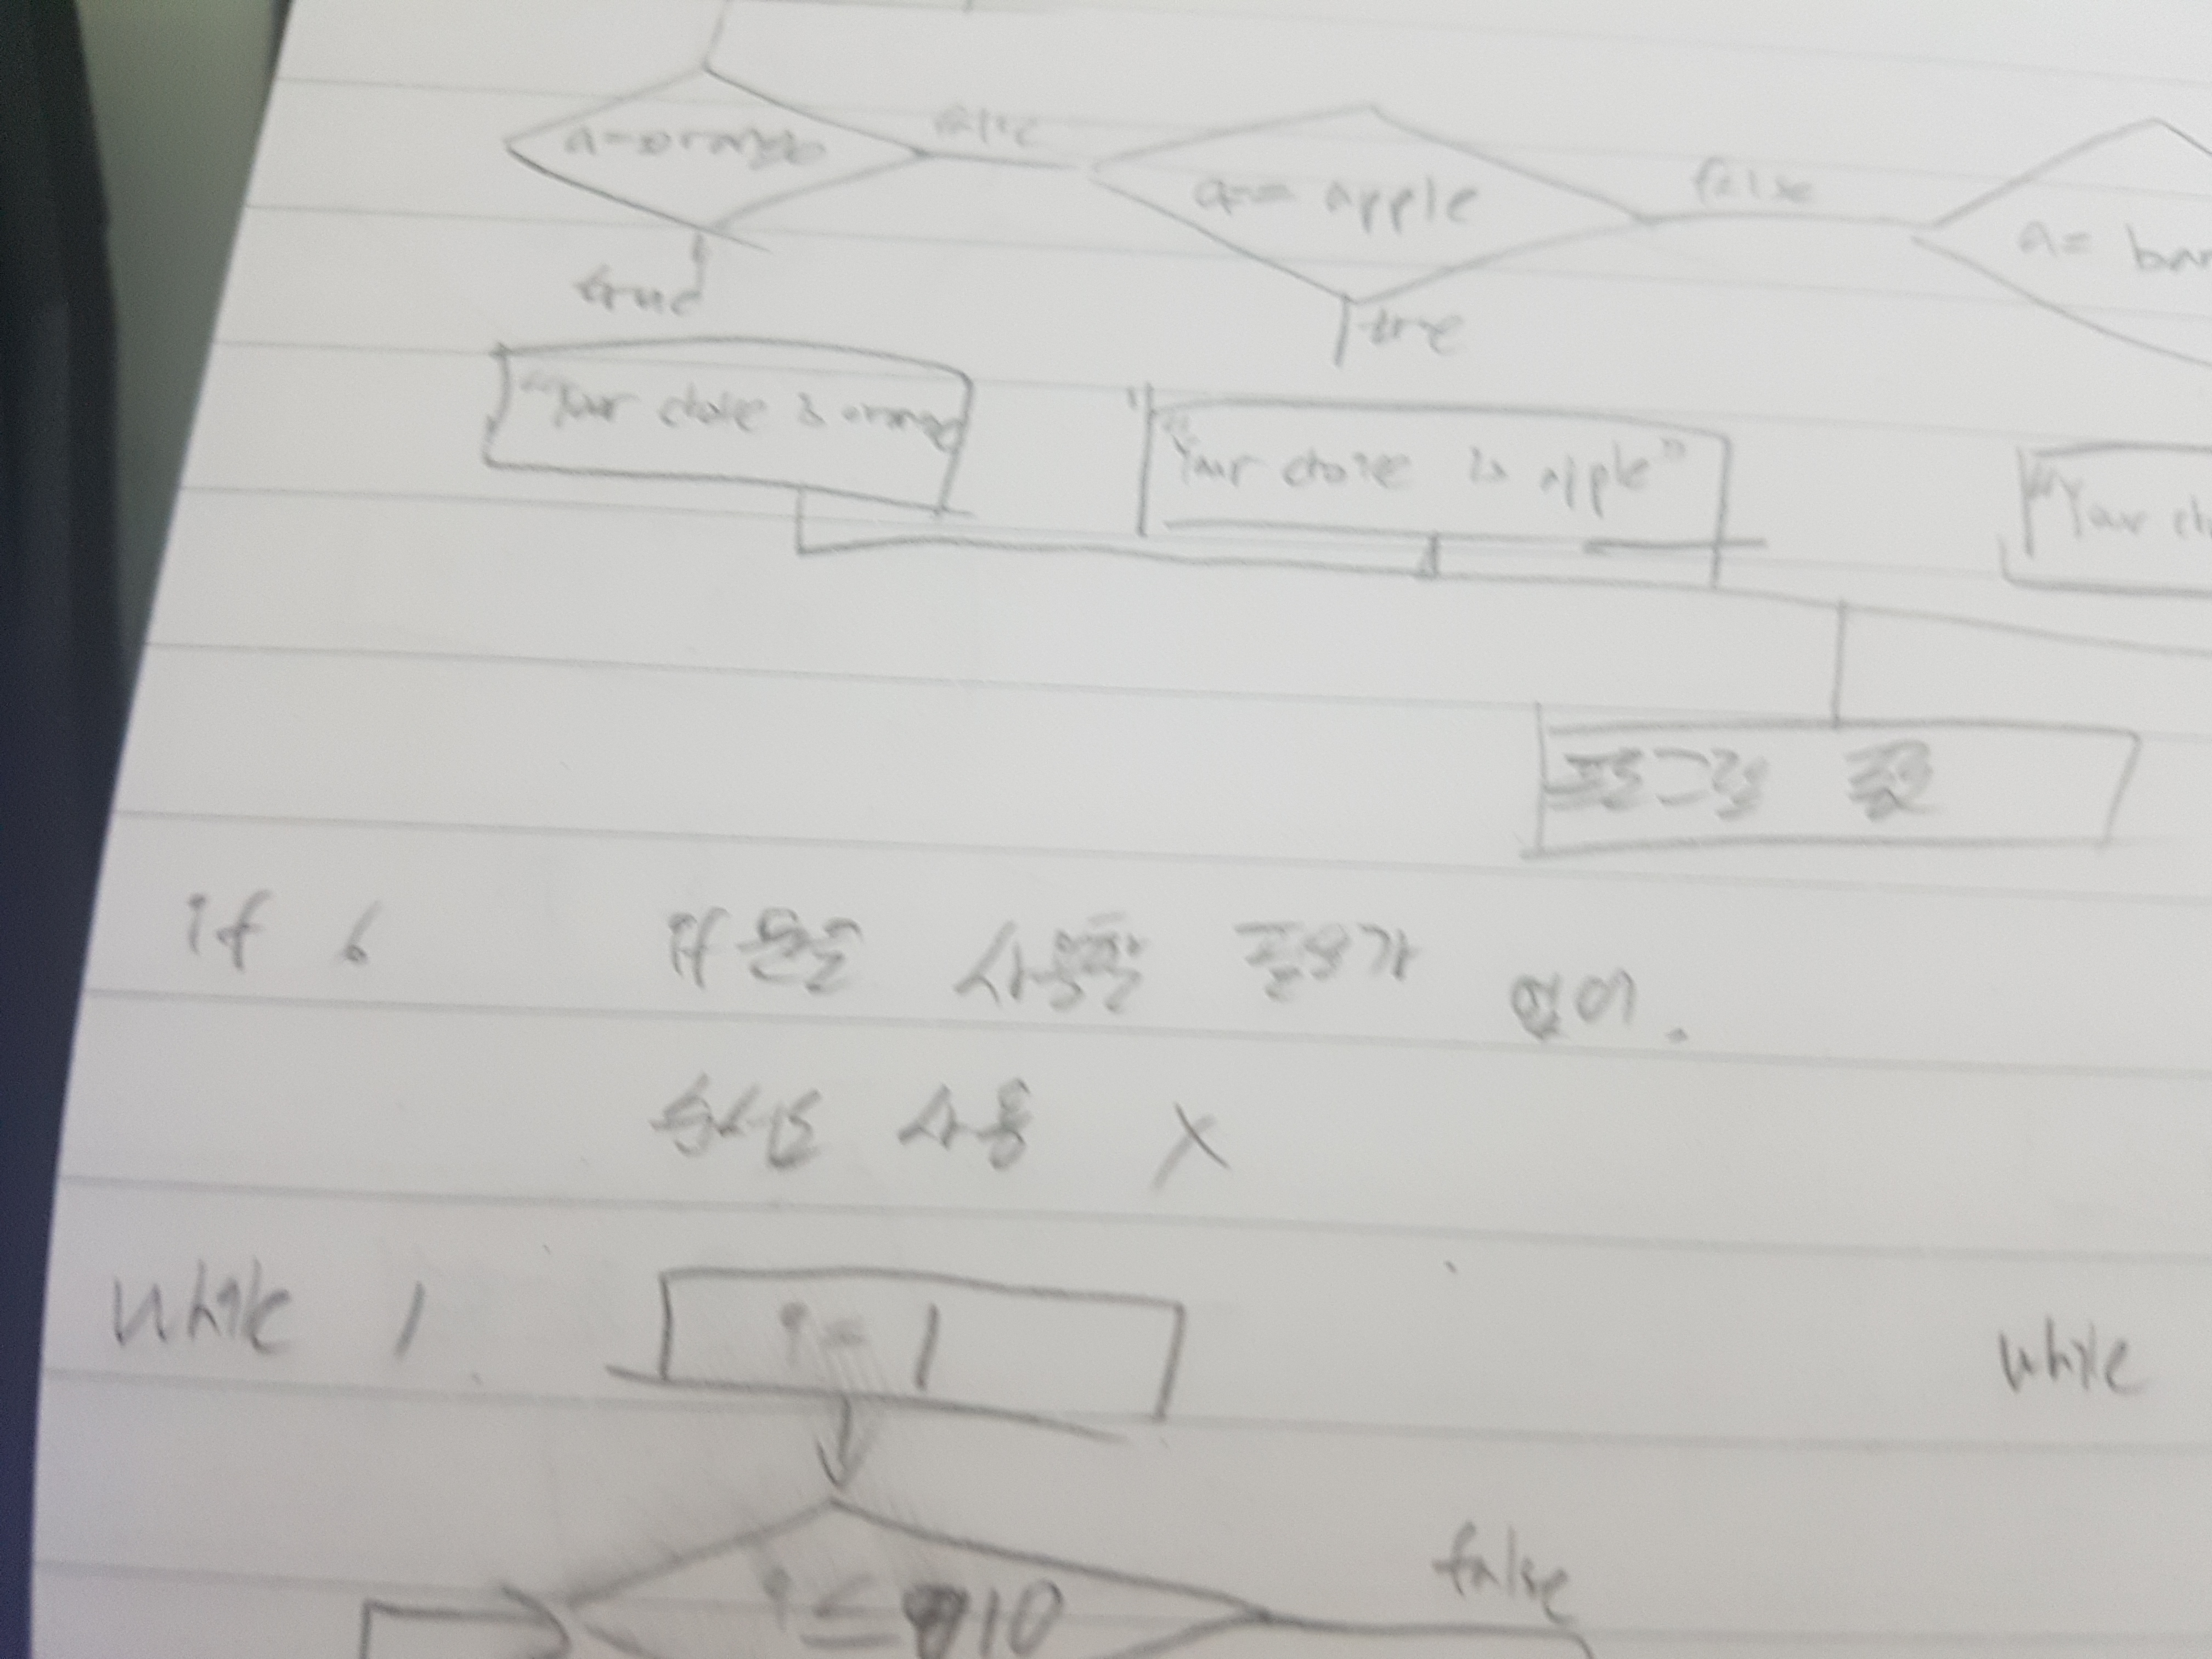 a=orange false a== apple false a= ban
true true
"Your choice is orange "Your choice is apple" "Your ch
프로그램 종료
if 6 if문을 사용할 필요가 없어.
사용 X
while 1 i= 1 while
false
i≤10